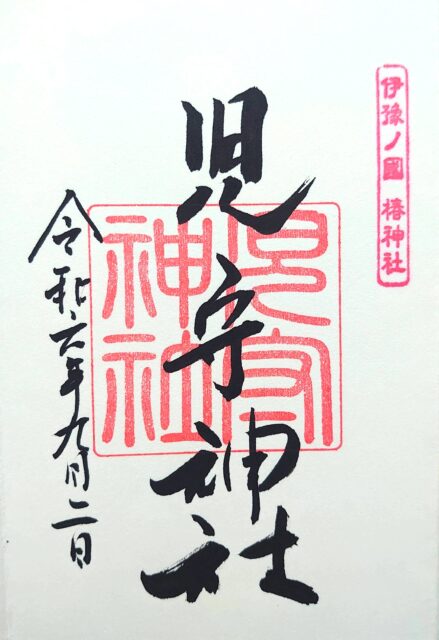 伊豫ノ國 椿神社
児守神社
兒守
神社
令和六年九月二日